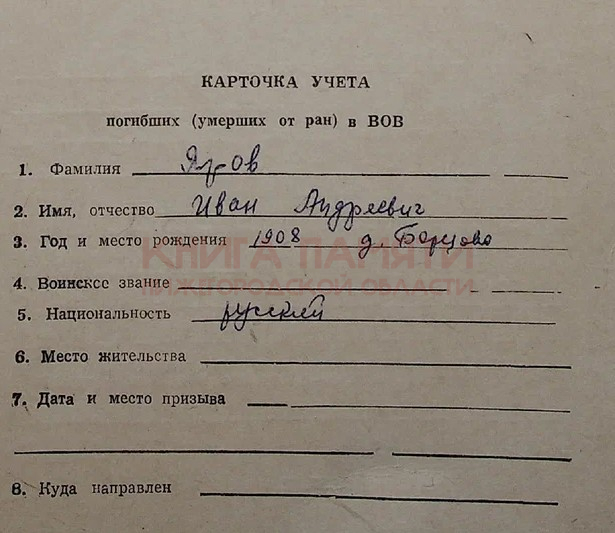 КАРТОЧКА УЧЕТА
погибших (умерших от ран) в ВОВ
1. Фамилия
2. Имя, отчество Иван Андреевич
3. Год и место рождения 1908 д.
КНИГА ПАМЯТИ
4. Воинское звание
НИЖЕГОРОДСКОЙ ОБЛАСТИ
5. Национальность русский
6. Место жительства
7. Дата и место призыва
8. Куда направлен